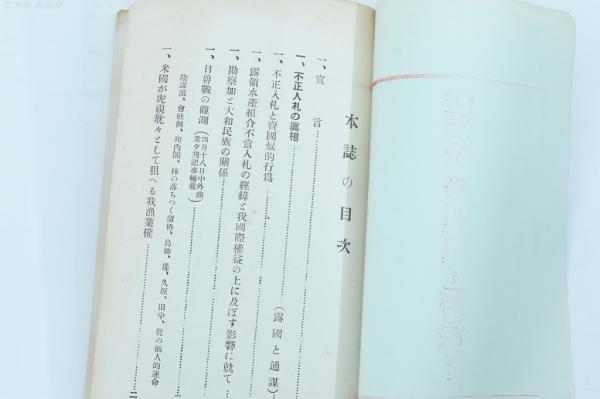 本誌の目次
一、宣言
一、不正入札の眞相
一、不正入札と賣國奴的行爲(露國と通謀)
一、露領水產組合不當入札の經緯と我國際權益の上に及ぼす影響に就て
一、勘察加と大和民族の關係
一、日魯戰の觀測(四月十八日中外商業夕刊記事轉載)
陰謀派、會社側、堤內閣、株の落ちつく價格、島德、堤、久原、田中、乾の個人的運命
一、米國が虎視眈々として狙へる我漁業權